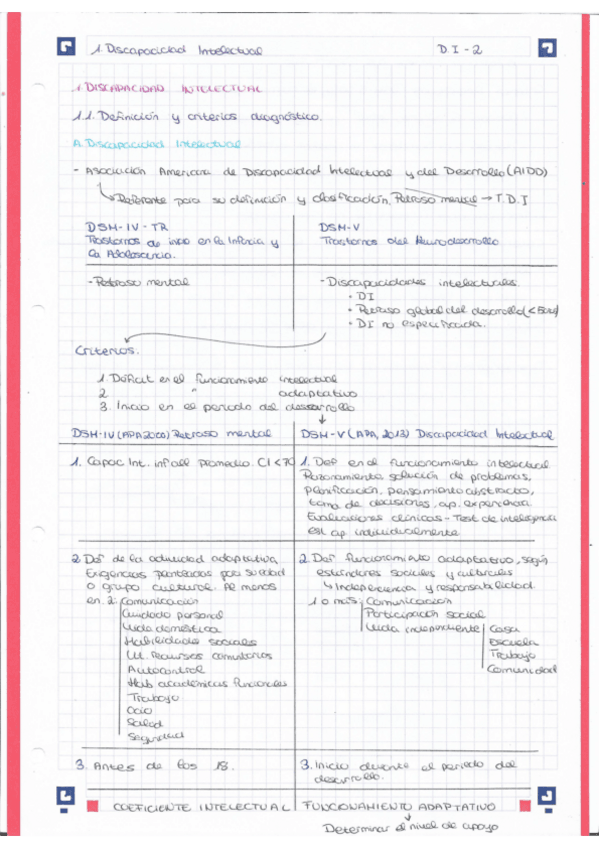 1. Discapacidad Intelectual D.I - 2
1. DISCAPACIDAD INTELECTUAL
1.1. Definición y criterios diagnóstico.
A. Discapacidad Intelectual
- Asociación Americana de Discapacidad Intelectual y del Desarrollo (AIDD)
Referente para su definición y clasificación. Retraso mental → T.D.I
DSM-IV-TR
Trastornos de inicio en la Infancia y
la Adolescencia.
DSM-V
Trastornos del Neurodesarrollo
- Retraso mental
- Discapacidades intelectuales.
• DI
• Retraso global del desarrollo (<5años)
• DI no especificada.
Criterios.
1. Déficit en el funcionamiento intelectual
2 " adaptativo
3. Inicio en el periodo del desarrollo
DSM-IV (APA 2000) Retraso mental
DSM-V (APA, 2013) Discapacidad Intelectual
1. Capac Int. inf al promedio. CI <70
1. Def en el funcionamiento intelectual
Razonamiento solución de problemas,
planificación, pensamiento abstracto,
toma de decisiones, ap. experiencia.
Evaluaciones clínicas - Test de inteligencia
est. ap individualmente
2 Def de la actividad adaptativa
Exigencias planteadas por su edad
o grupo cultural. Al menos
en 2: Comunicación
Cuidado personal
Vida doméstica
Habilidades sociales
Ut. recursos comunitarios
Autocontrol
Hab académicas funcionales
Trabajo
Ocio
Salud
Seguridad
2. Def funcionamiento adaptativo, según
estándares sociales y culturales
↳ Independencia y responsabilidad
1 o más: Comunicación
Participación social
Vida independiente Casa
Escuela
Trabajo
Comunidad
3. Antes de los 18.
3. Inicio durante el periodo del
desarrollo.
COEFICIENTE INTELECTUAL FUNCIONAMIENTO ADAPTATIVO
Determinar el nivel de apoyo